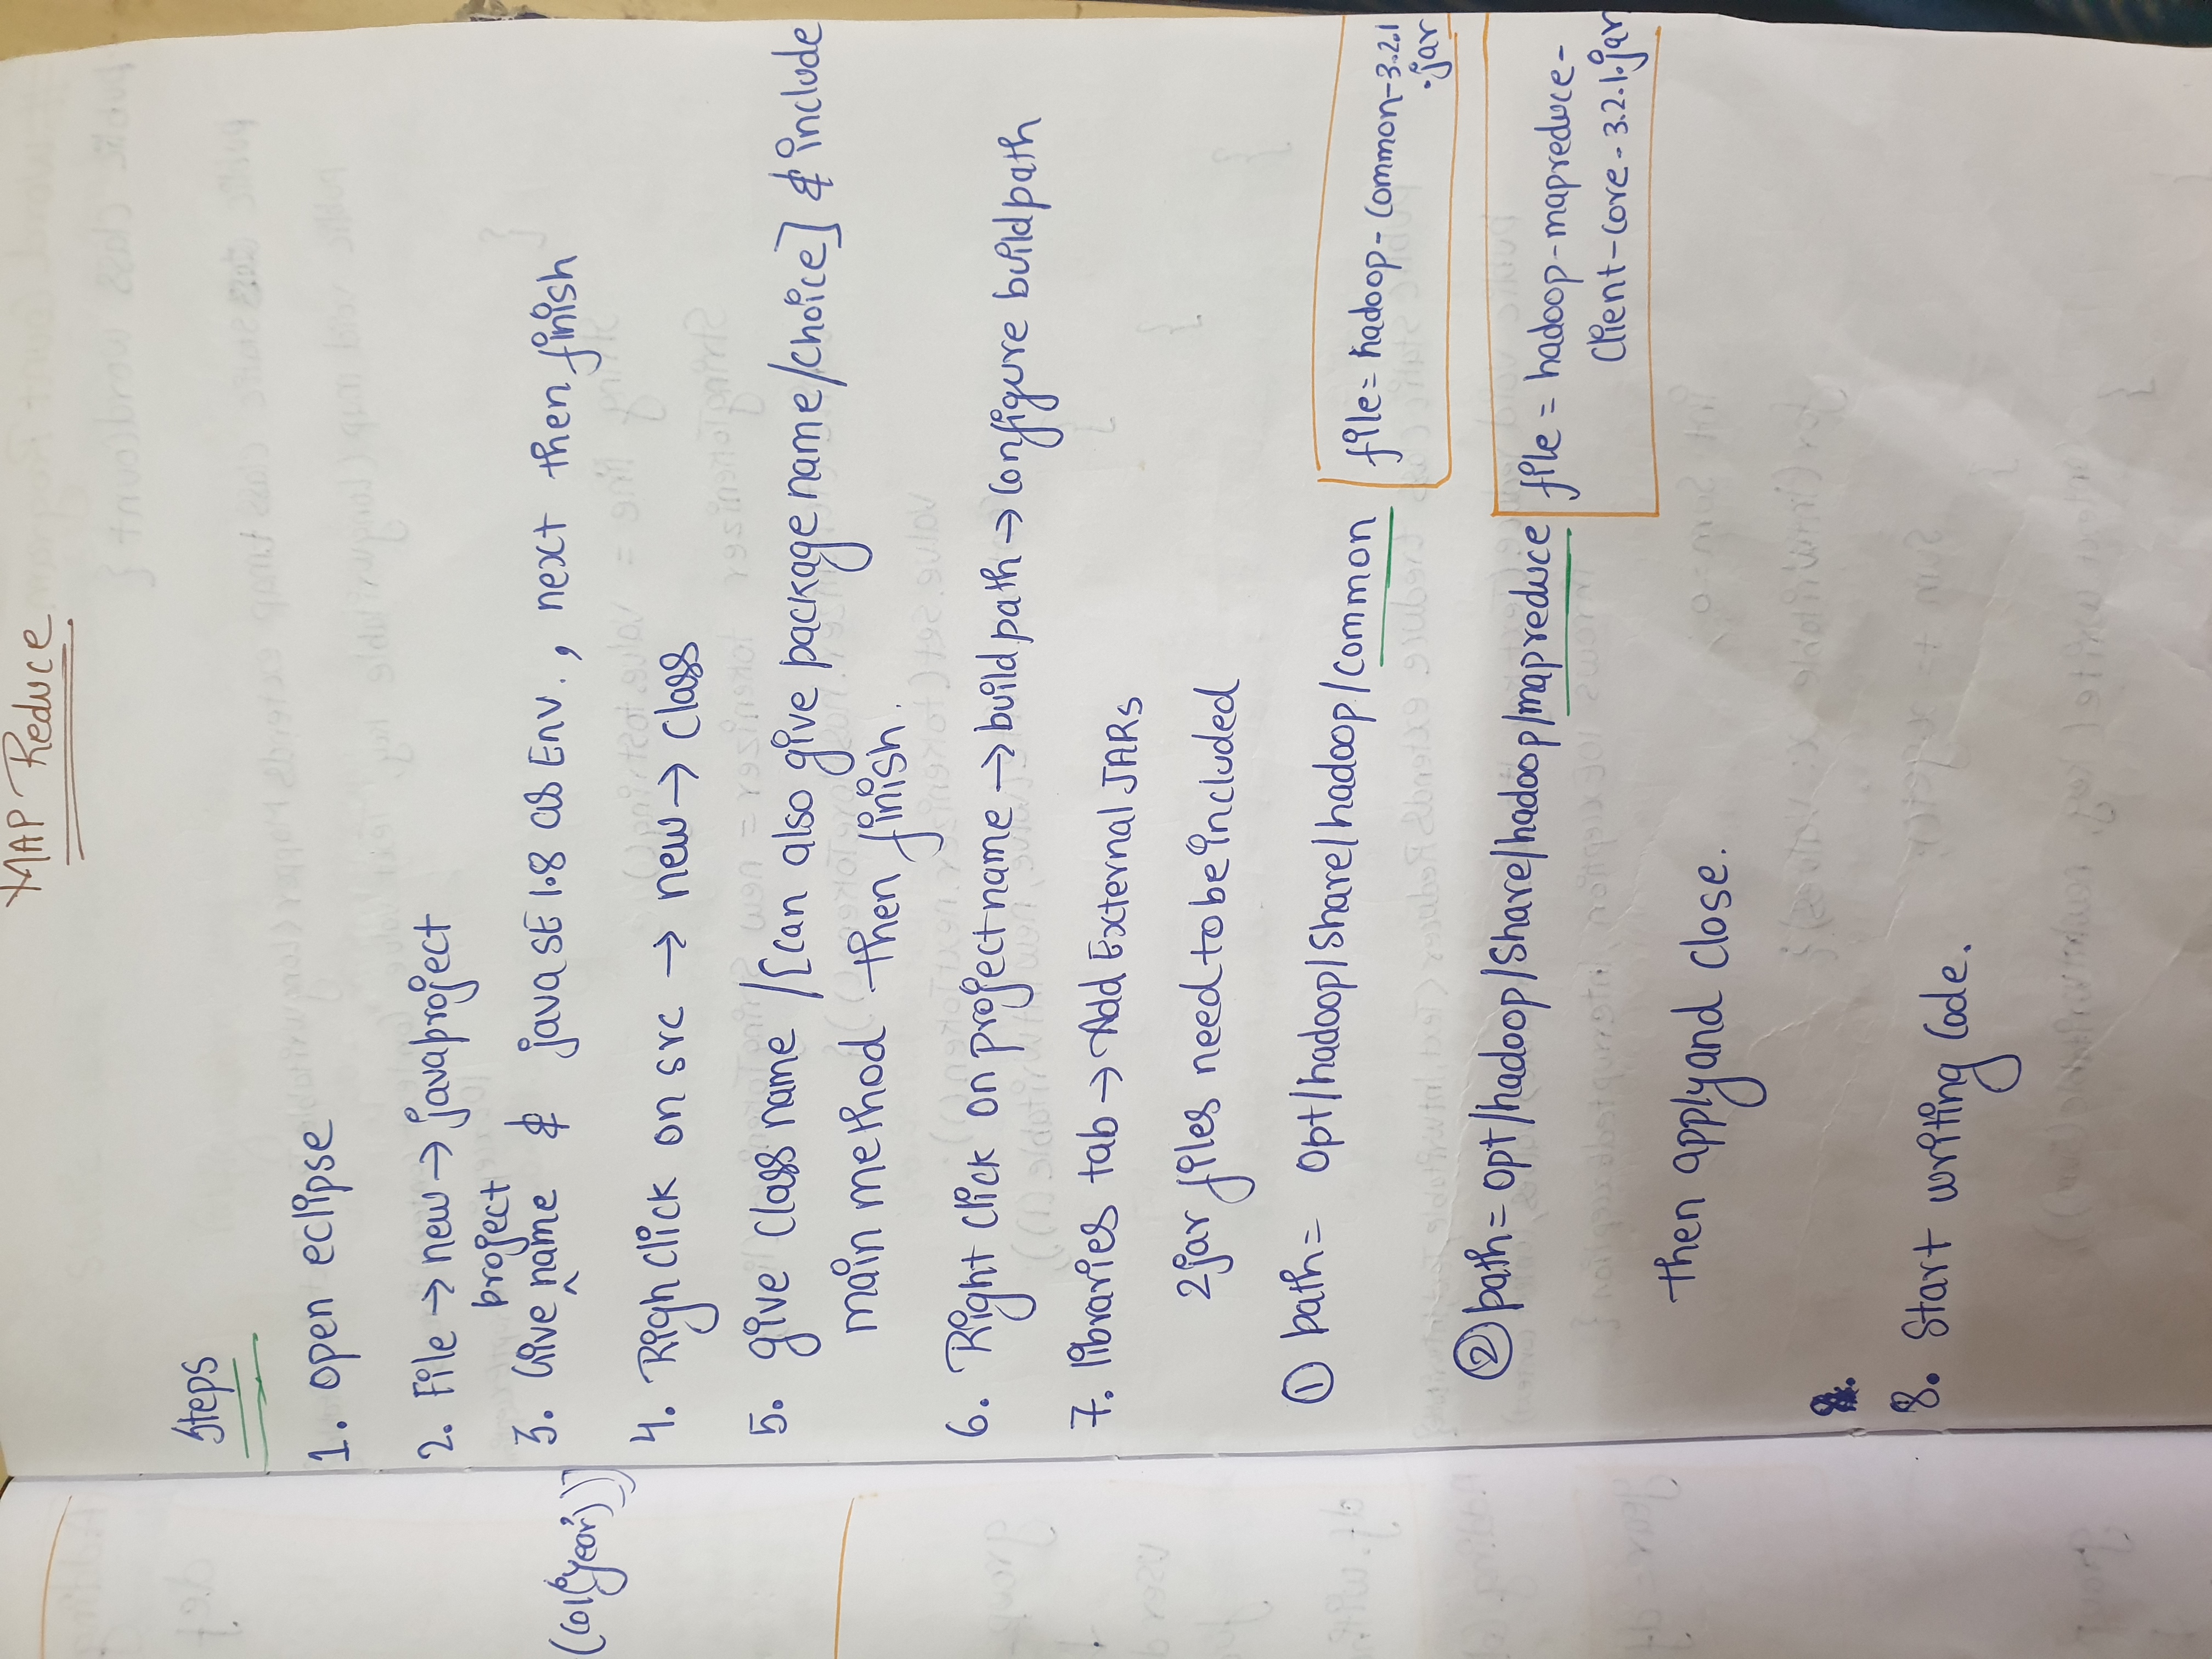 MAP Reduce
Steps
1. open eclipse
2. File → new → javaproject
project
3. Give ^ name & java SE 1.8 as Env. , next then finish
(col('year'))
4. Righ click on src → new → class
5. give class name /[can also give package name/choice] & include
main method then finish.
6. Right click on project name → build path → configure build path
7. libraries tab → Add External JARs
2 jar files need to be included
① path = opt/hadoop/share/hadoop/common
file = hadoop-common-3.2.1
.jar
② path = opt/hadoop/share/hadoop/mapreduce
file = hadoop-mapreduce-
client-core-3.2.1.jar
then apply and close.
8. Start writing code.